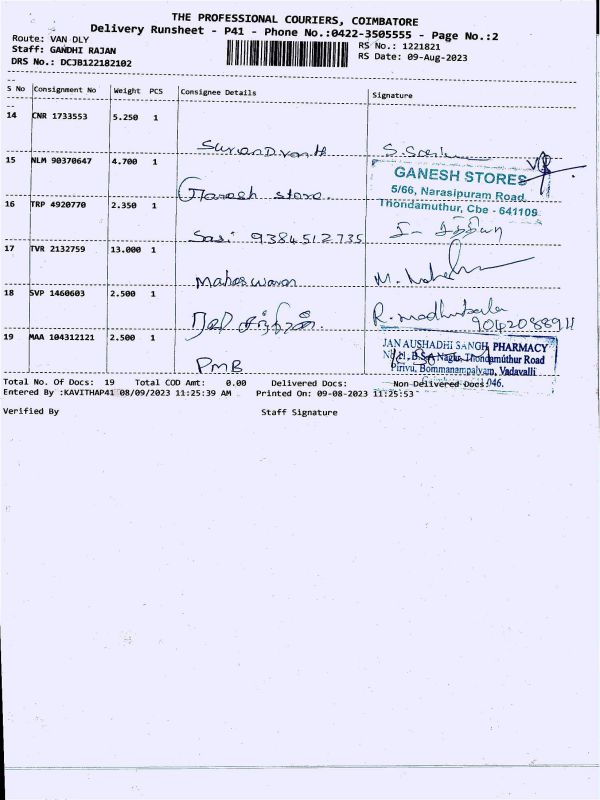 THE PROFESSIONAL COURIERS, COIMBATORE
Delivery Runsheet - P41 - Phone No.:0422-3505555 - Page No.:2
Route: VAN DLY
RS No.: 1221821
Staff: GANDHI RAJAN
RS Date: 09-Aug-2023
DRS No.: DCJB122182102
S No Consignment No Weight PCS Consignee Details Signature
14 CNR 1733553 5.250 1
15 NLM 90370647 4.700 1
Ganesh store.
GANESH STORES
5/66, Narasipuram Road,
Thondamuthur, Cbe - 641109
16 TRP 4920770 2.350 1
Sasi 9384512735
17 TVR 2132759 13.000 1
Maheswaran
18 SVP 1460603 2.500 1
R. madhubala
9042088911
19 MAA 104312121 2.500 1
PMB
JAN AUSHADHI SANGH PHARMACY
Nagar, Thondamuthur Road
Pirivu, Bommanampalyam, Vadavalli
046.
Total No. Of Docs: 19 Total COD Amt: 0.00 Delivered Docs: Non Delivered Docs:
Entered By :KAVITHAP41 08/09/2023 11:25:39 AM Printed On: 09-08-2023 11:25:53
Verified By Staff Signature